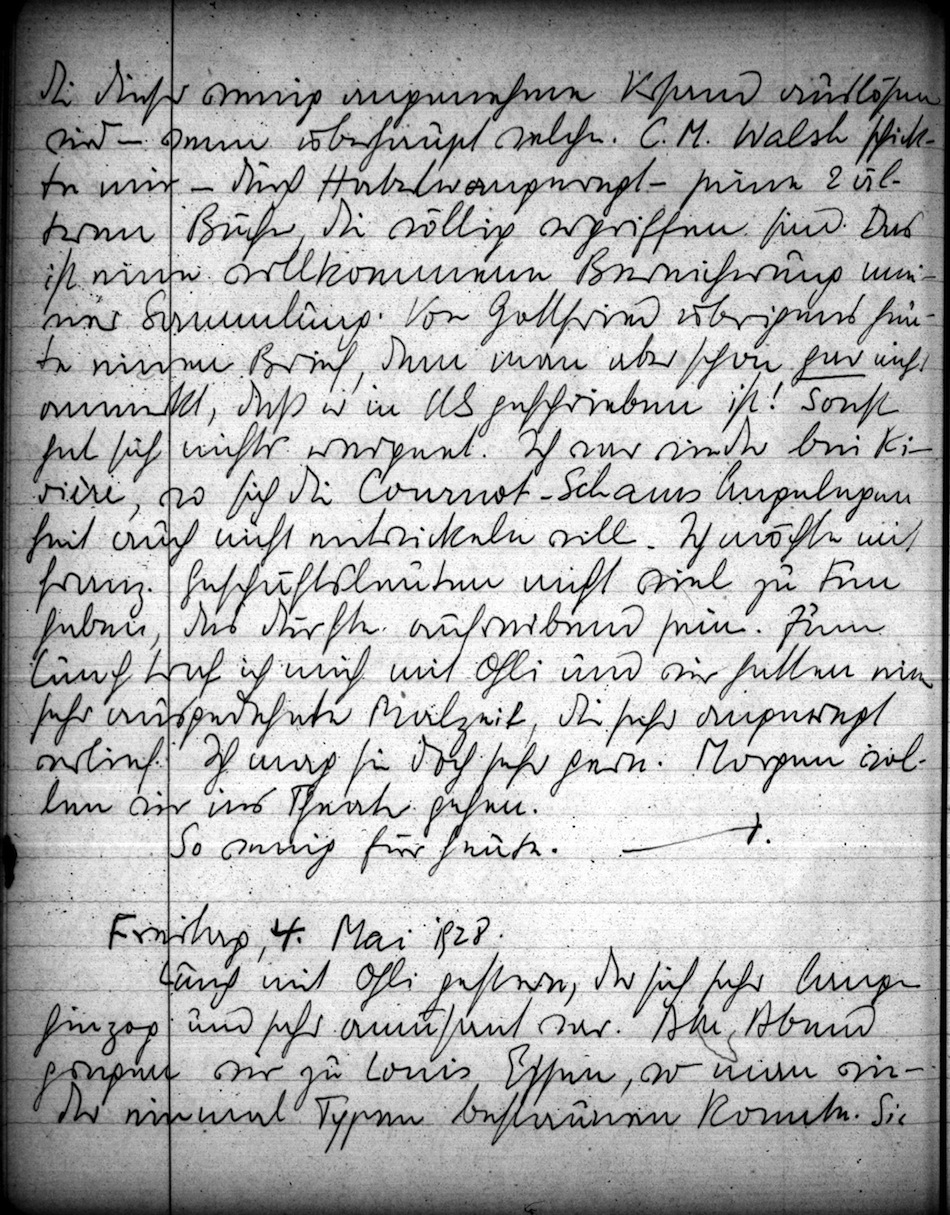 die dieser wenig angenehme Versand auslösen
wird – wenn überhaupt welche. C. M. Walsh schick-
te mir – durch Haberler angeregt – seine 2 äl-
teren Bücher, die völlig vergriffen sind. Das
ist eine willkommene Bereicherung mei-
ner Sammlung. Von Gottfried übrigens heu-
te einen Brief, dem man aber schon gar nicht
anmerkt, daß er in US geschrieben ist! Sonst
hat sich nichts ereignet. Ich war wieder bei Ri-
vière, wo sich die Cournot-Schams Angelegen
heit auch nicht entwickeln will. Ich möchte mit
franz. Geschäftsleuten nicht viel zu tun
haben, das dürfte aufreibend sein. Zum
Lunch traf ich mich mit Olli und wir hatten eine
sehr ausgedehnte Malzeit, die sehr angeregt
verlief. Ich mag sie doch sehr gern. Morgen wol-
len wir ins Theater gehen.
So wenig für heute.
Freitag, 4. Mai 1928.
Lunch mit Olli gestern, der sich sehr lange
hinzog und sehr amüsant war. Abend
gingen wir zu Louis Essen, wo man wie-
der einmal Typen bestaunen konnte. Sie